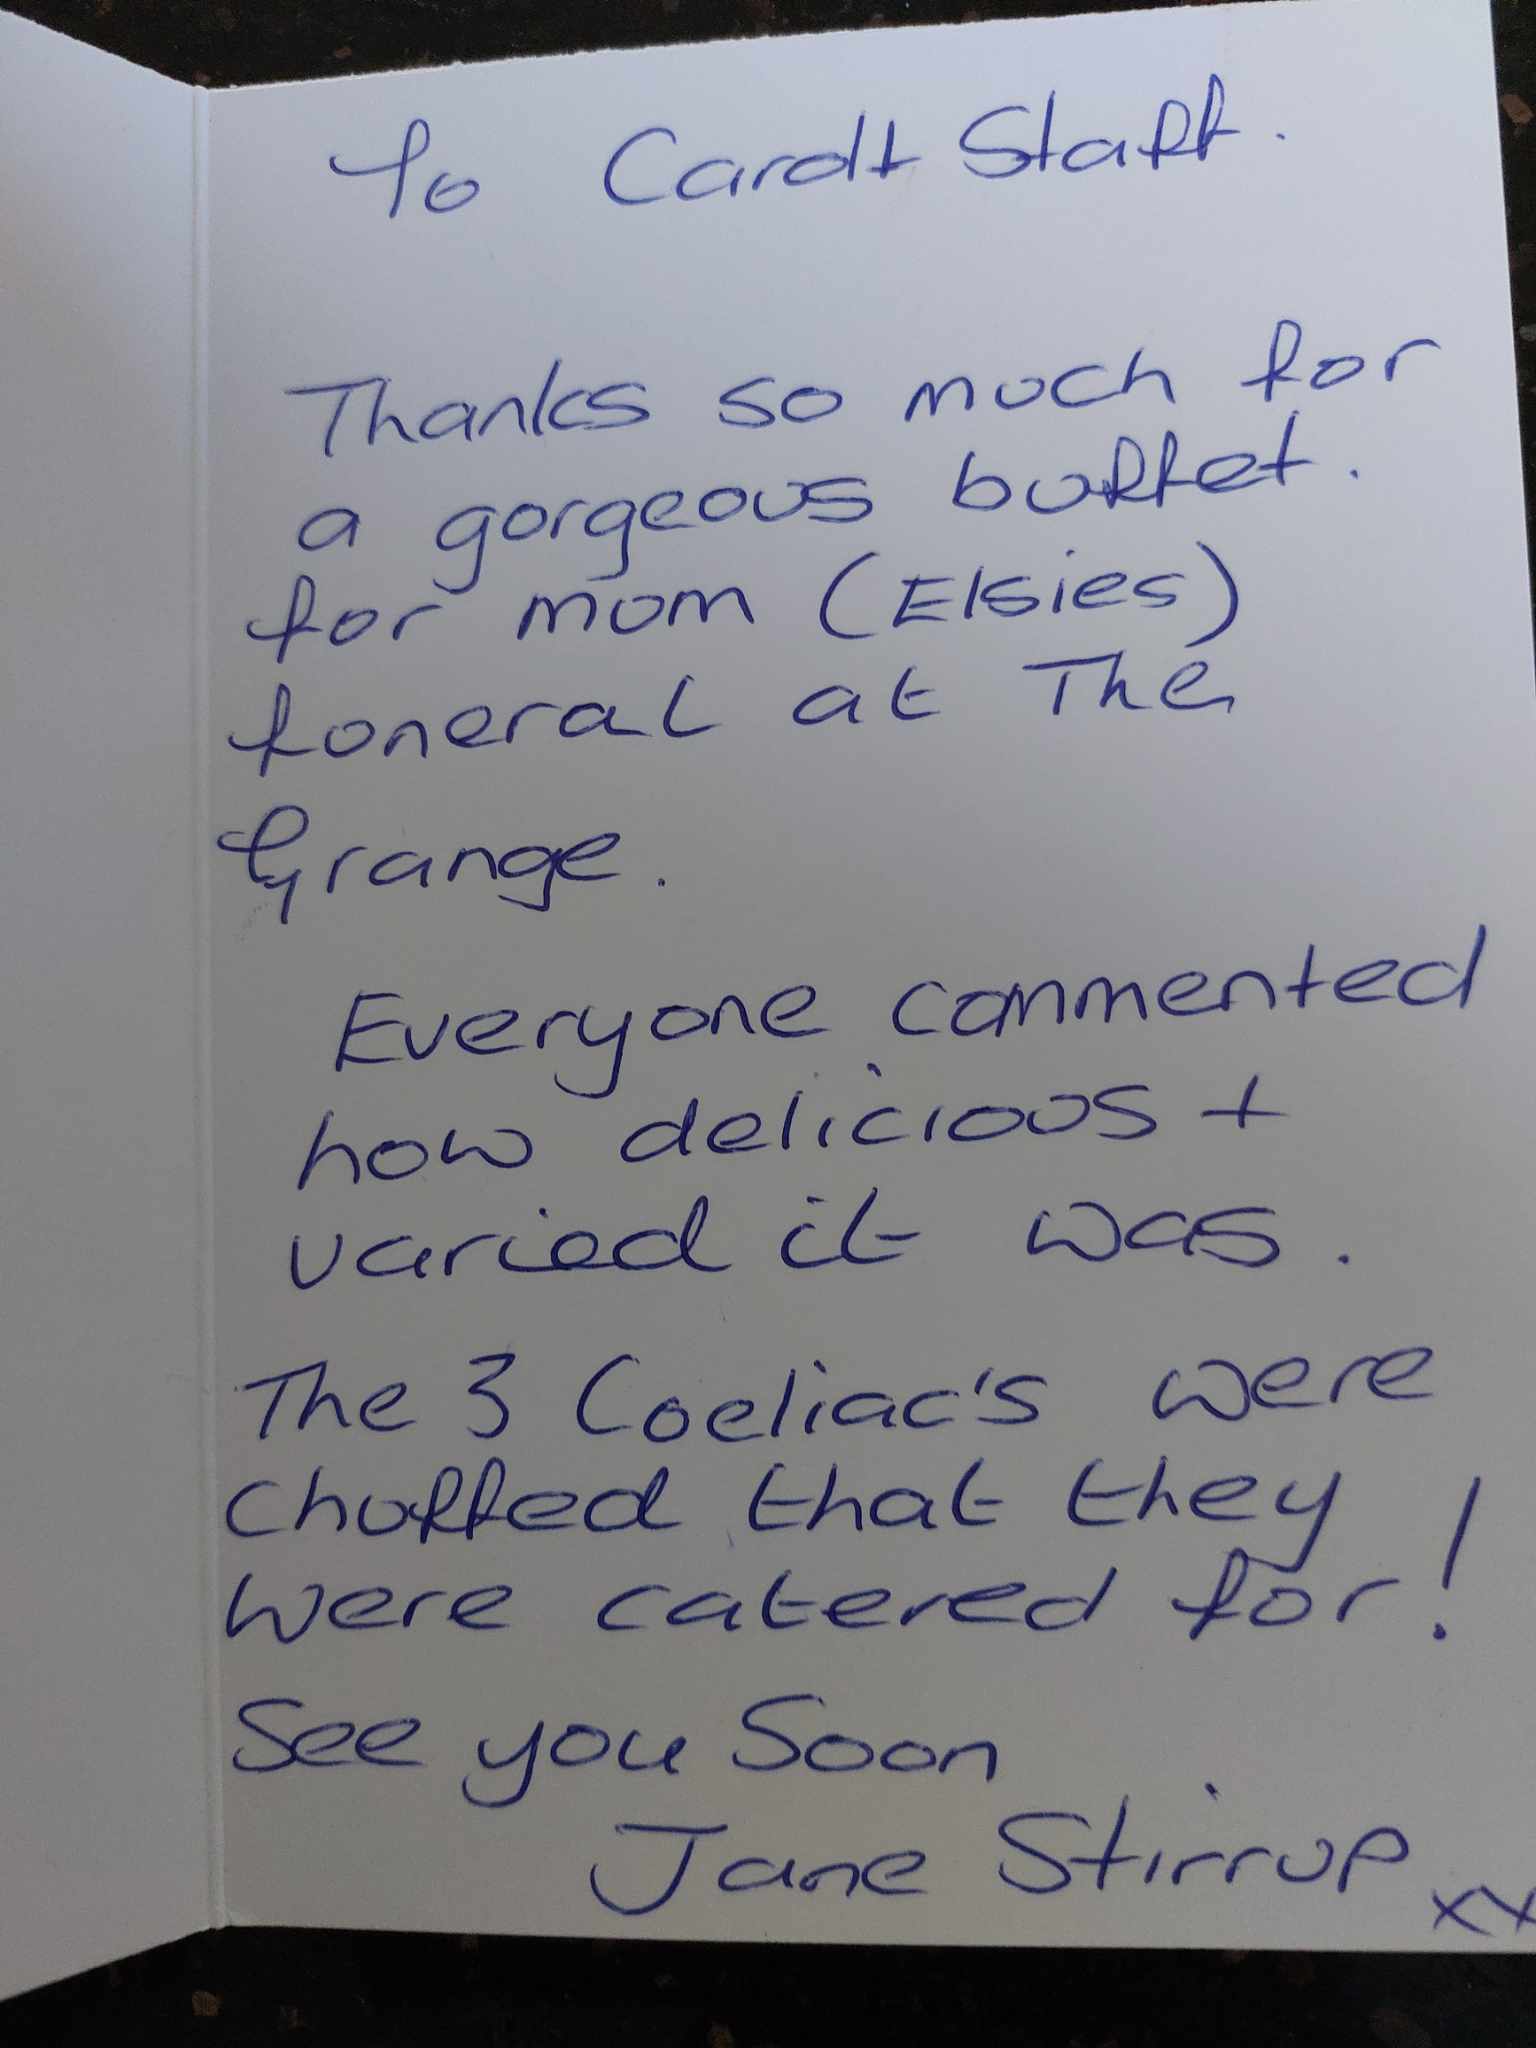 To Carol + Staff.
Thanks so much for
a gorgeous buffet.
for mom (Elsies)
funeral at The
Grange.
Everyone commented
how delicious +
varied it was.
The 3 Coeliac's were
chuffed that they
were catered for!
See you Soon
Jane Stirrup xx